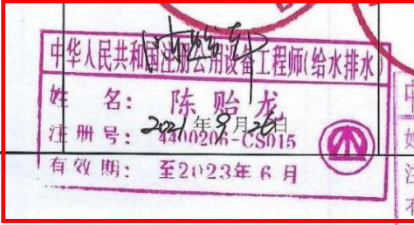 中华人民共和国注册公用设备工程师(给水排水)
姓 名: 陈贻龙
2021年9月26日
注册号: 4400206-CS015
有效期: 至2023年6月